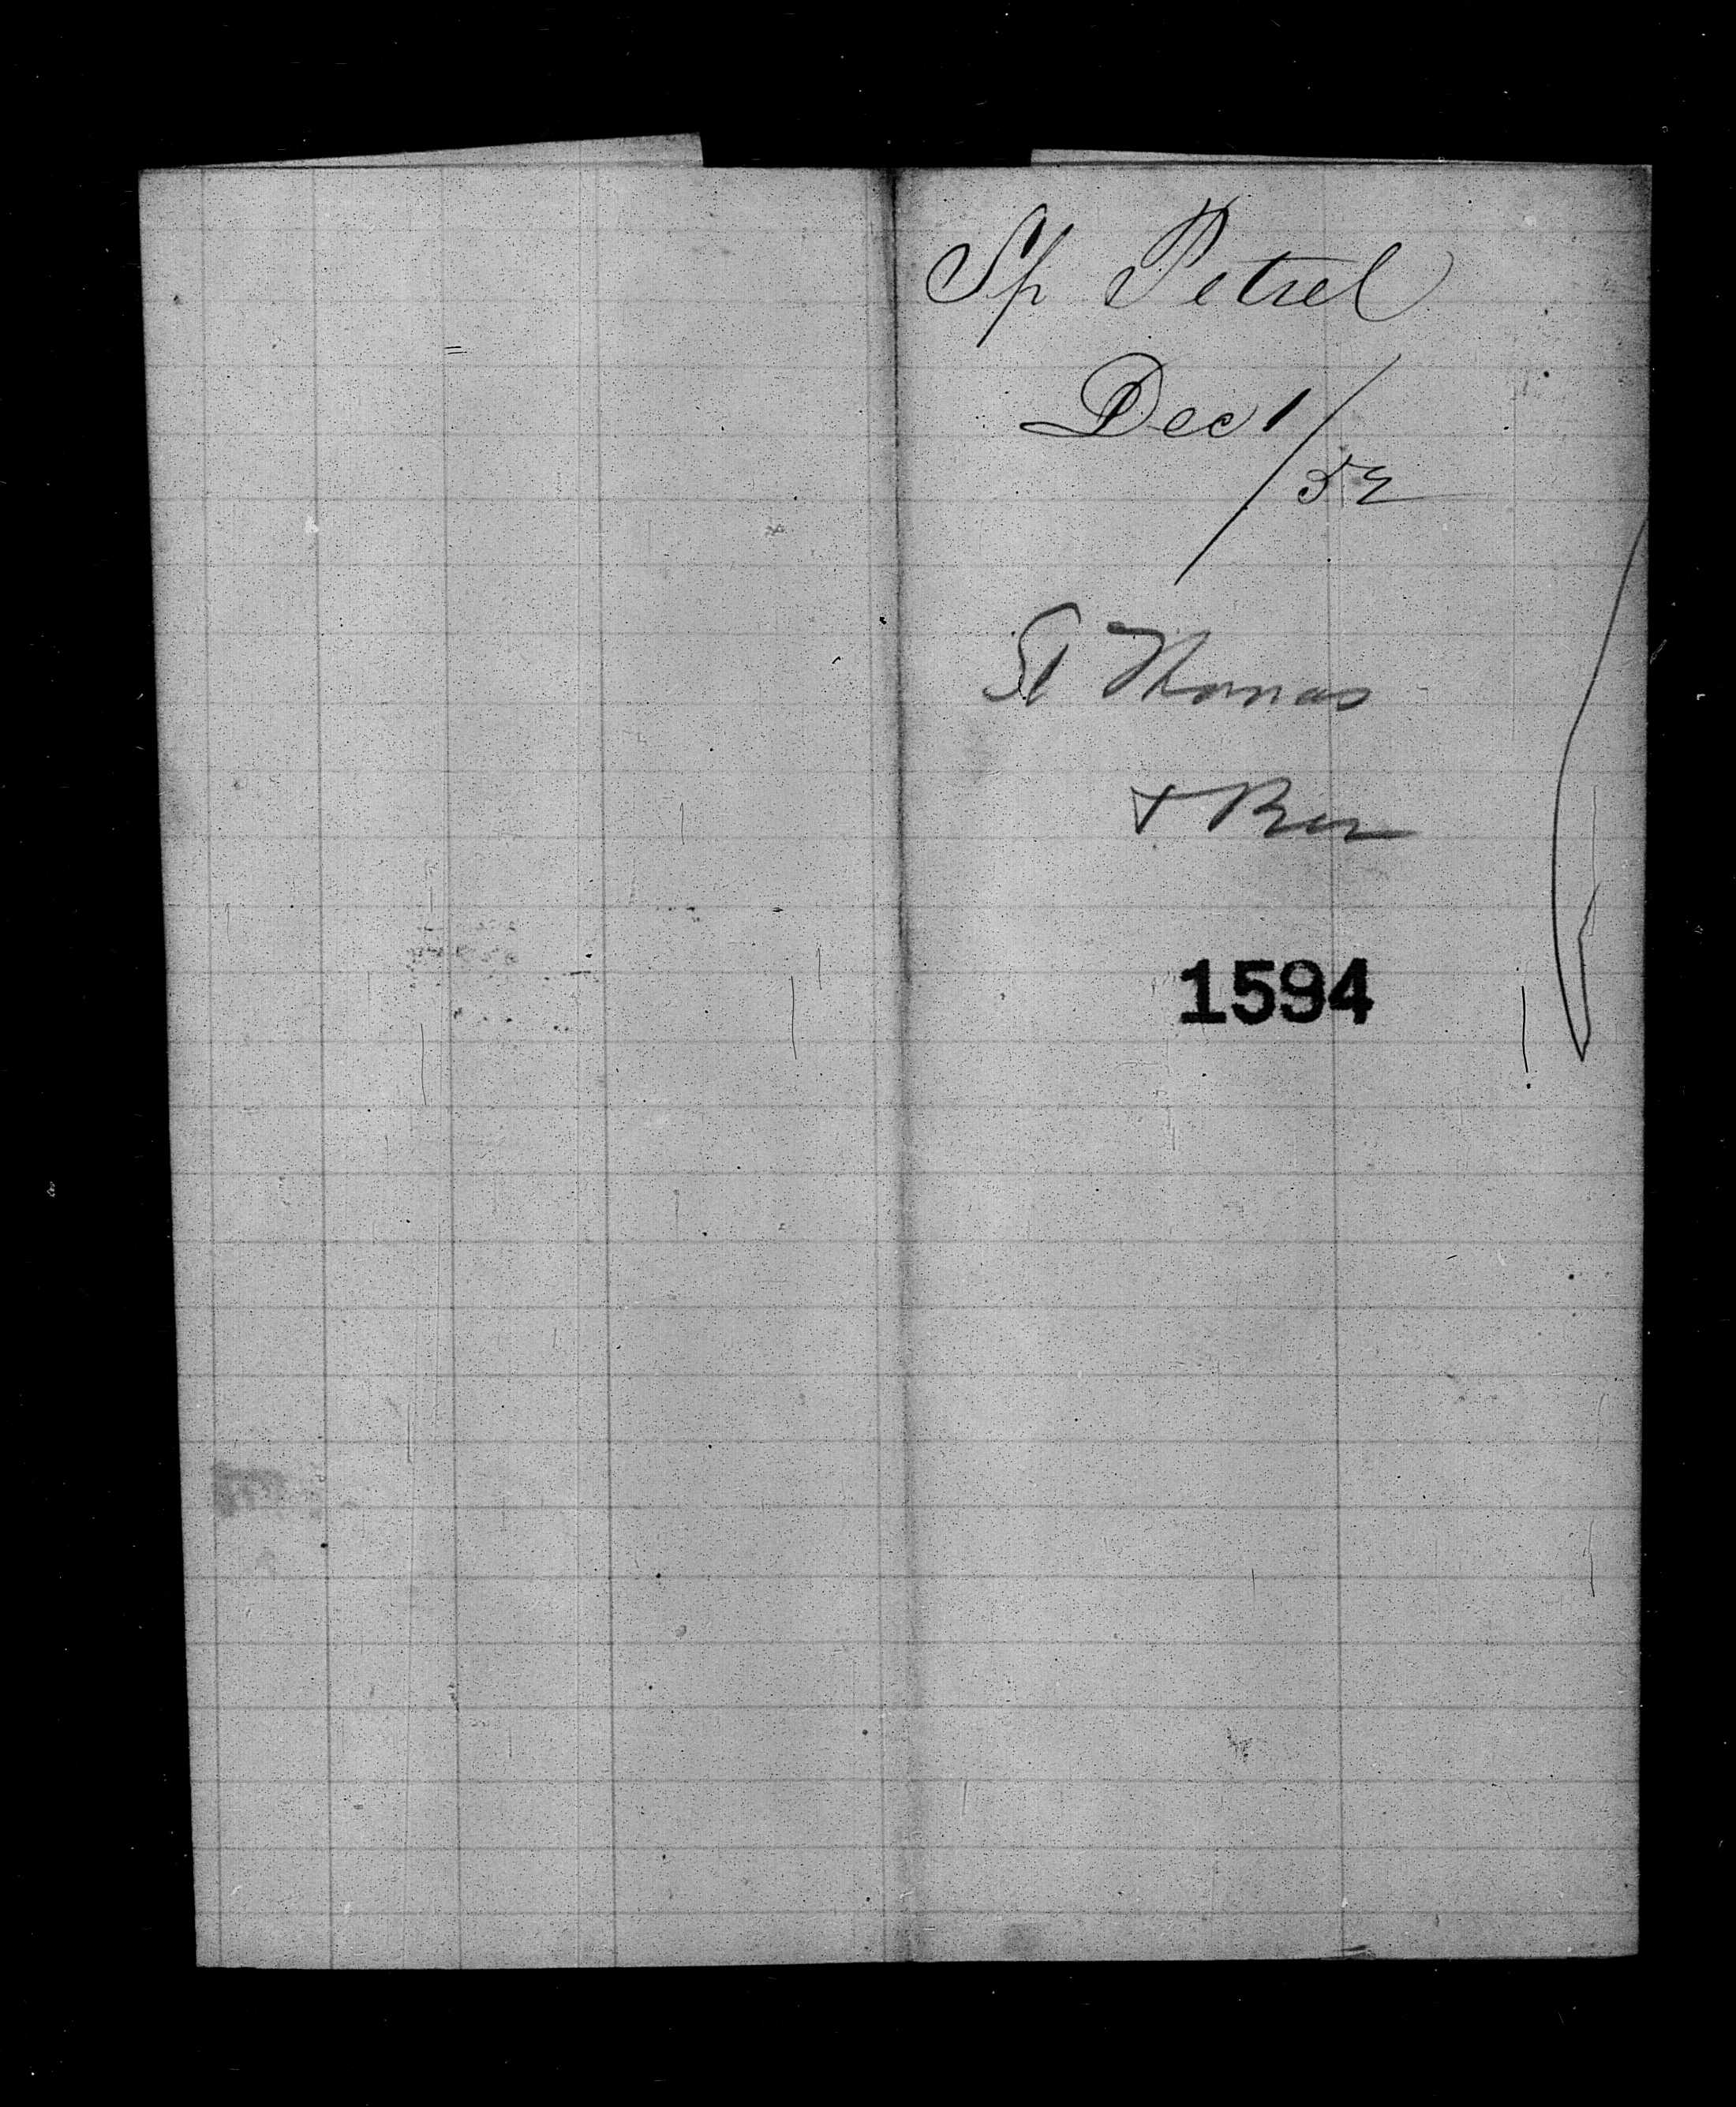 Sp Petrel
Dec 1/52
St Thomas
+
1594